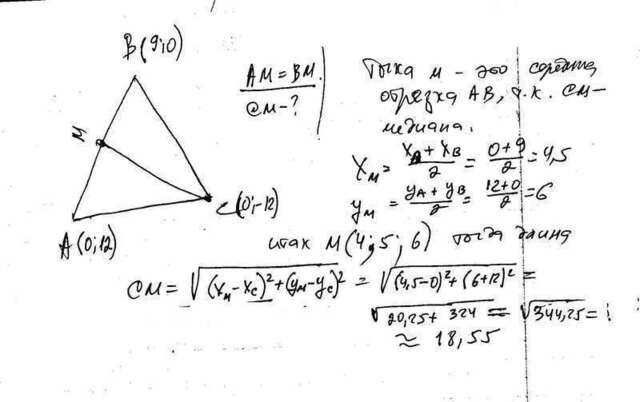 B(9;0)
M
A(0;12)
C(0;-12)
AM=BM.
CM-?
Точка M - это середина
отрезка AB, т.к. CM-
медиана.
X_M = (X_A + X_B)/2 = (0+9)/2 = 4,5
y_M = (y_A + y_B)/2 = (12+0)/2 = 6
итак M(4,5; 6) тогда длина
CM = √((X_M - X_C)² + (y_M - y_C)²) = √((4,5-0)² + (6+12)²) =
√(20,25 + 324) = √344,25 =
≈ 18,55